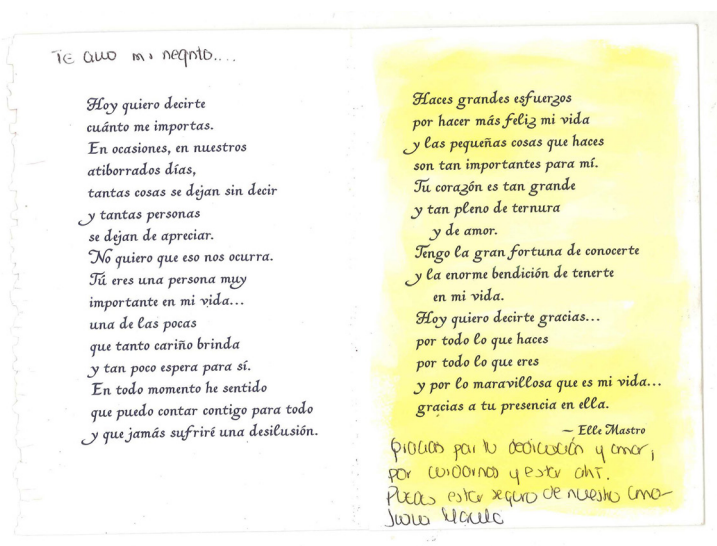 TE amo mi negrito....
Hoy quiero decirte
cuánto me importas.
En ocasiones, en nuestros
atiborrados días,
tantas cosas se dejan sin decir
y tantas personas
se dejan de apreciar.
No quiero que eso nos ocurra.
Tú eres una persona muy
importante en mi vida...
una de las pocas
que tanto cariño brinda
y tan poco espera para sí.
En todo momento he sentido
que puedo contar contigo para todo
y que jamás sufriré una desilusión.
Haces grandes esfuerzos
por hacer más feliz mi vida
y las pequeñas cosas que haces
son tan importantes para mí.
Tu corazón es tan grande
y tan pleno de ternura
y de amor.
Tengo la gran fortuna de conocerte
y la enorme bendición de tenerte
en mi vida.
Hoy quiero decirte gracias...
por todo lo que haces
por todo lo que eres
y por lo maravillosa que es mi vida...
gracias a tu presencia en ella.
— Elle Mastro
Gracias por tu dedicación y amor,
por cuidarnos y estar ahí.
Puedes estar seguro de nuestro amor